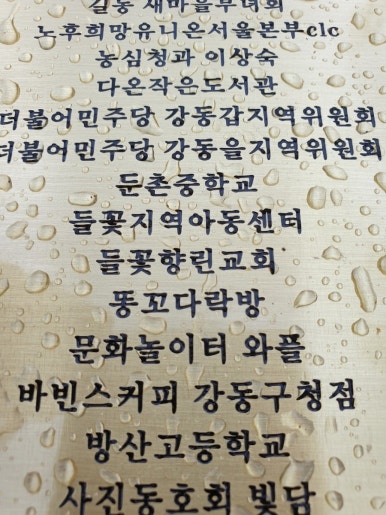 길동 새마을부녀회
노후희망유니온서울본부clc
농심청과 이상숙
다온작은도서관
더불어민주당 강동갑지역위원회
더불어민주당 강동을지역위원회
둔촌중학교
들꽃지역아동센터
들꽃향린교회
똥꼬다락방
문화놀이터 와플
바빈스커피 강동구청점
방산고등학교
사진동호회 빛담